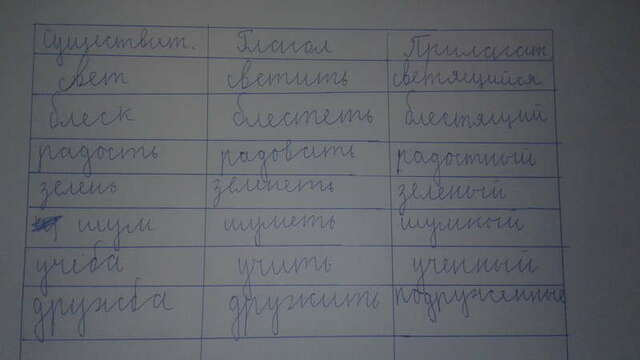 Существит. Глагол Прилагат
свет светить светящийся
блеск блестеть блестящий
радость радовать радостный
зелень зеленеть зеленый
шум шуметь шумный
учёба учить ученный
дружба дружить